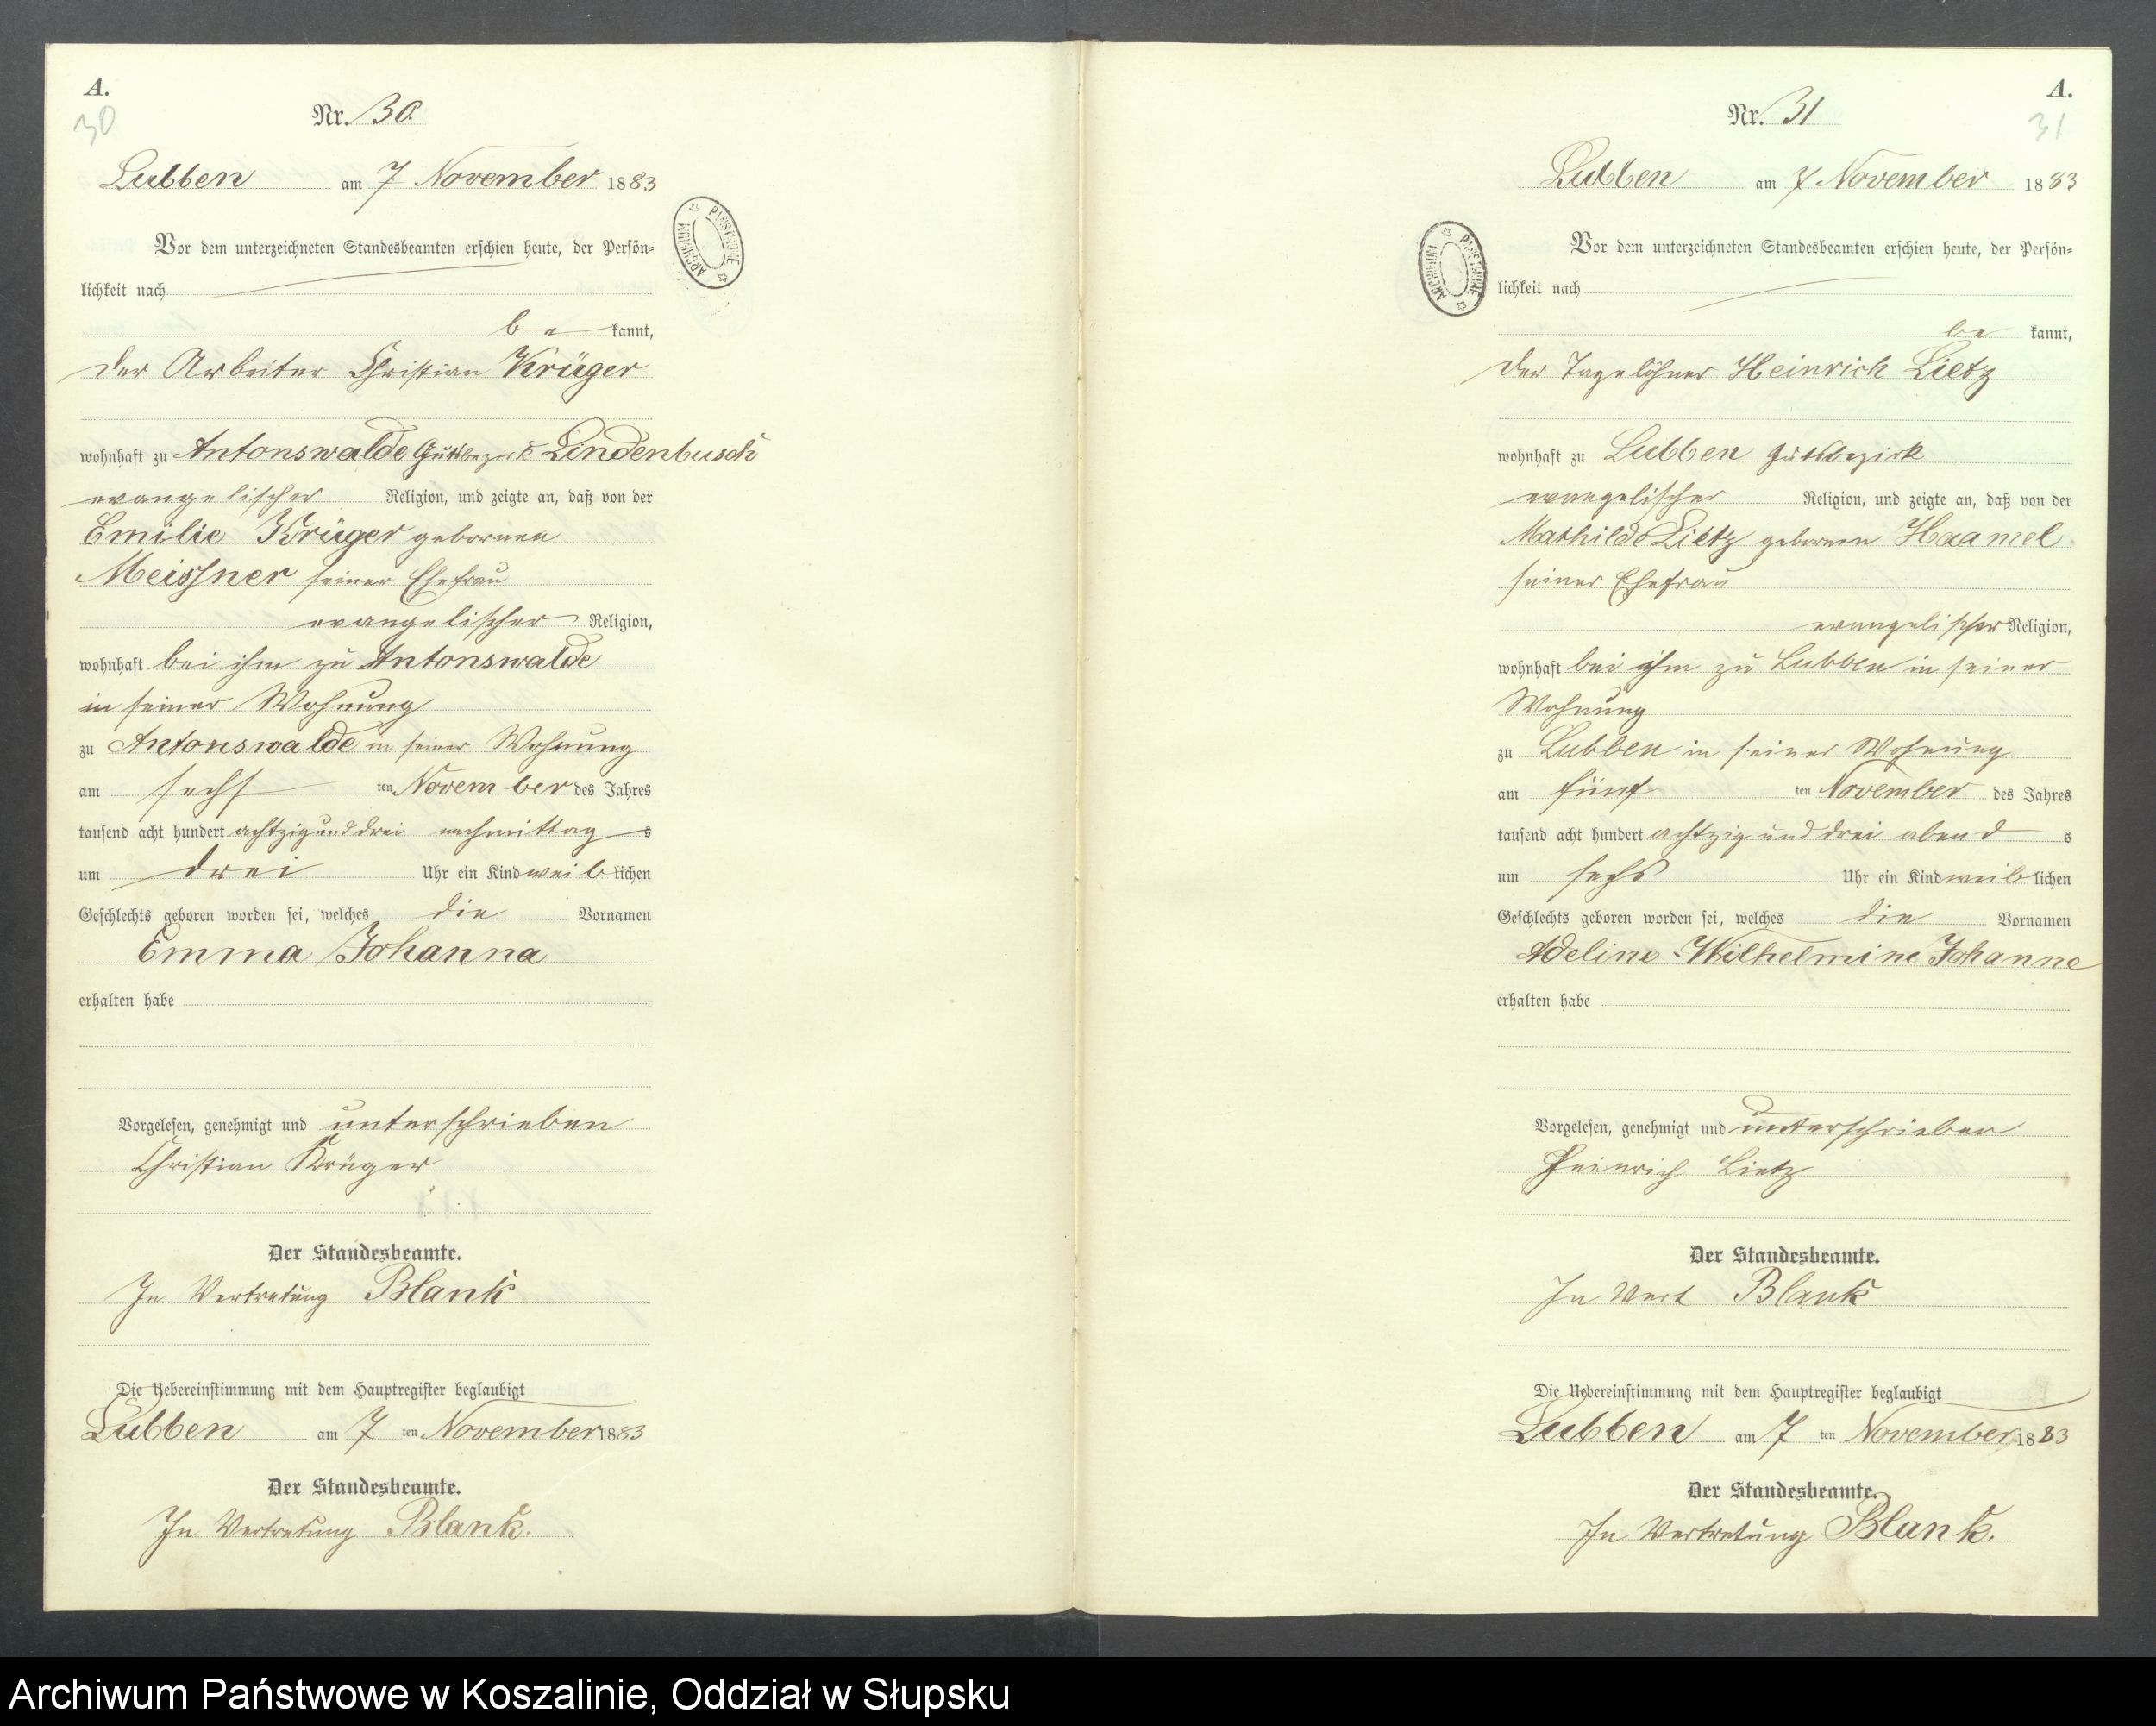 A.
30
Nr. 30.
Lubben am 7 November 1883
Vor dem unterzeichneten Standesbeamten erschien heute, der Persön=
lichkeit nach
be kannt,
der Arbeiter Christian Krüger
wohnhaft zu Antonswalde Gutsbezirk Lindenbusch
evangelischer Religion, und zeigte an, daß von der
Emilie Krüger gebornen
Meissner seiner Ehefrau
evangelischer Religion,
wohnhaft bei ihm zu Antonswalde
in seiner Wohnung
zu Antonswalde in seiner Wohnung
am sechs ten November des Jahres
tausend acht hundert achtzig und drei nachmittag s
um drei Uhr ein Kind weib lichen
Geschlechts geboren worden sei, welches die Vornamen
Emma Johanna
erhalten habe
Vorgelesen, genehmigt und unterschrieben
Christian Krüger
Der Standesbeamte.
In Vertretung Blank
Die Uebereinstimmung mit dem Hauptregister beglaubigt
Lubben am 7 ten November 1883
Der Standesbeamte.
In Vertretung Blank.
ARCHIWUM PAŃSTWOWE
A.
31
Nr. 31
Lubben am 7 November 1883
Vor dem unterzeichneten Standesbeamten erschien heute, der Persön=
lichkeit nach
be kannt,
der Tagelöhner Heinrich Lietz
wohnhaft zu Lubben Gutsbezirk
evangelischer Religion, und zeigte an, daß von der
Mathilde Lietz gebornen Haamel
seiner Ehefrau
evangelischer Religion,
wohnhaft bei ihm zu Lubben in seiner
Wohnung
zu Lubben in seiner Wohnung
am fünf ten November des Jahres
tausend acht hundert achtzig und drei abend s
um sechs Uhr ein Kind weib lichen
Geschlechts geboren worden sei, welches die Vornamen
Adeline Wilhelmine Johanne
erhalten habe
Vorgelesen, genehmigt und unterschrieben
Heinrich Lietz
Der Standesbeamte.
In Vert Blank
Die Uebereinstimmung mit dem Hauptregister beglaubigt
Lubben am 7 ten November 1883
Der Standesbeamte.
In Vertretung Blank.
ARCHIWUM PAŃSTWOWE
Archiwum Państwowe w Koszalinie, Oddział w Słupsku